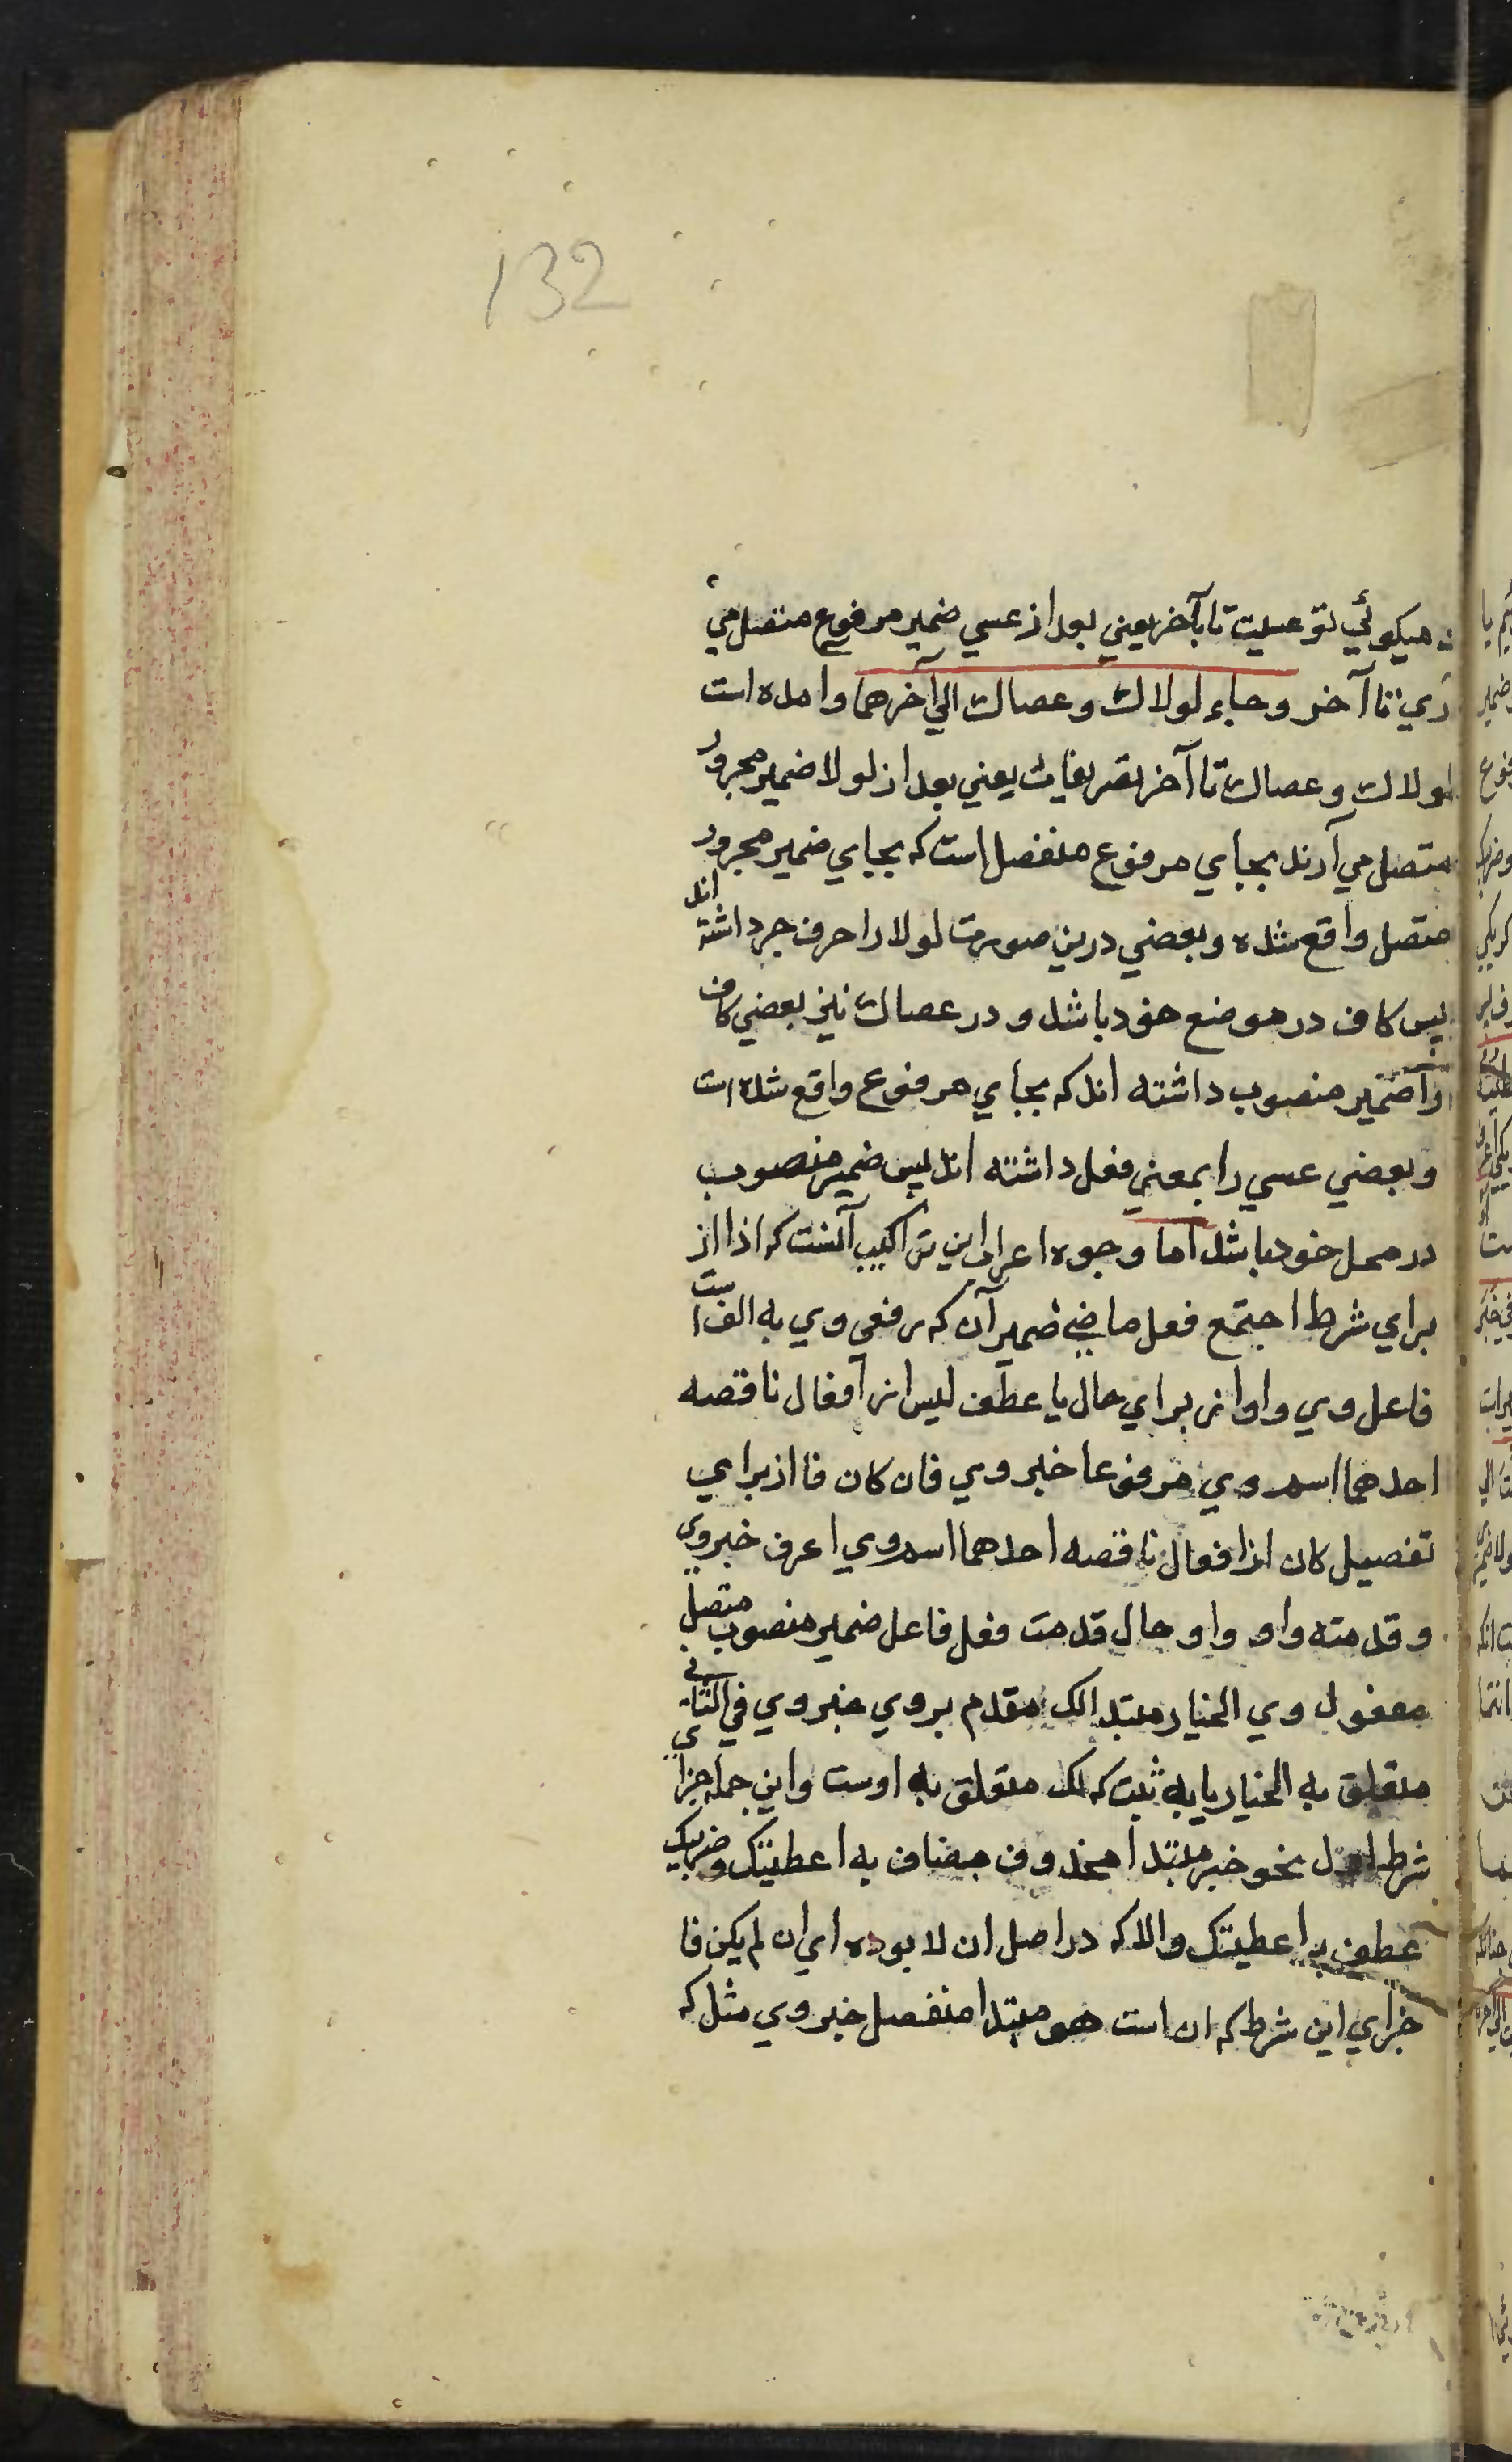 132
میکوئي تو عسیت تا بآخر یعني بعد از عسي ضمیر مرفوع متصل می
آري تا آخر وجاء لولاك وعصاك الي آخرهما وامده است
لولاك وعصاك تا آخر تصریفات یعني بعد از لولا ضمیر مجرور
متصل مي آرند بجاي مرفوع منفصل است که بجاي ضمیر مجرور
متصل واقع شده وبعضي درین صورت لولا را حرف جر داشته اند
پس کاف در موضع خود باشد و در عصاك نیز بعضي کاف
را ضمیر منصوب داشته اند که بجاي مرفوع واقع شده است
وبعضي عسي را بمعني فعل داشته اند پس ضمیر منصوب
در محل خود باشد اما وجوه اعراب این تراکیب آنست که اذا از
براي شرط اجتمع فعل ماضي ضمیرآن که رفعی وي به الف است
فاعل وي واو از براي حال یا عطف لیس از افعال ناقصه
احدهما اسم وي مرفوعا خبر وي فان کان فا از براي
تفصیل کان از افعال ناقصه احدهما اسم وي اعرف خبر وي
وقدمته واو واو حال قدمت فعل فاعل ضمیر منصوب متصل
مفعول وي الخیار مبتدا لک مقدم بر وي خبر وي في الثاني
متعلق به الخیار یا به ثبت که لک متعلق به اوست واین جمله جزاي
شرط اول نحو خبر مبتدا محذوف مضاف به اعطیتک وضربیک
عطف بر اعطیتک والا که در اصل ان لا بوده اي ان لم یکن فا
جزاي این شرط که ان است هو مبتدا منفصل خبر وي مثل که